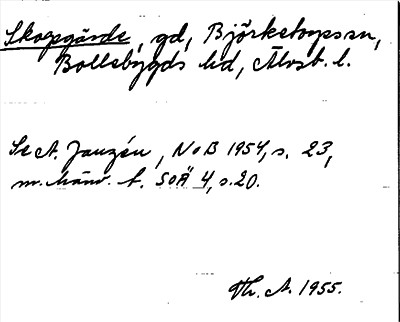 Skogsgärde, gd, Björketorps sn,
Bollebygds hd, Älvsb. l.
Se A. Janzén, NoB 1954, s. 23,
m. hänv. t. SOÄ 4, s. 20.
Th. A. 1955.